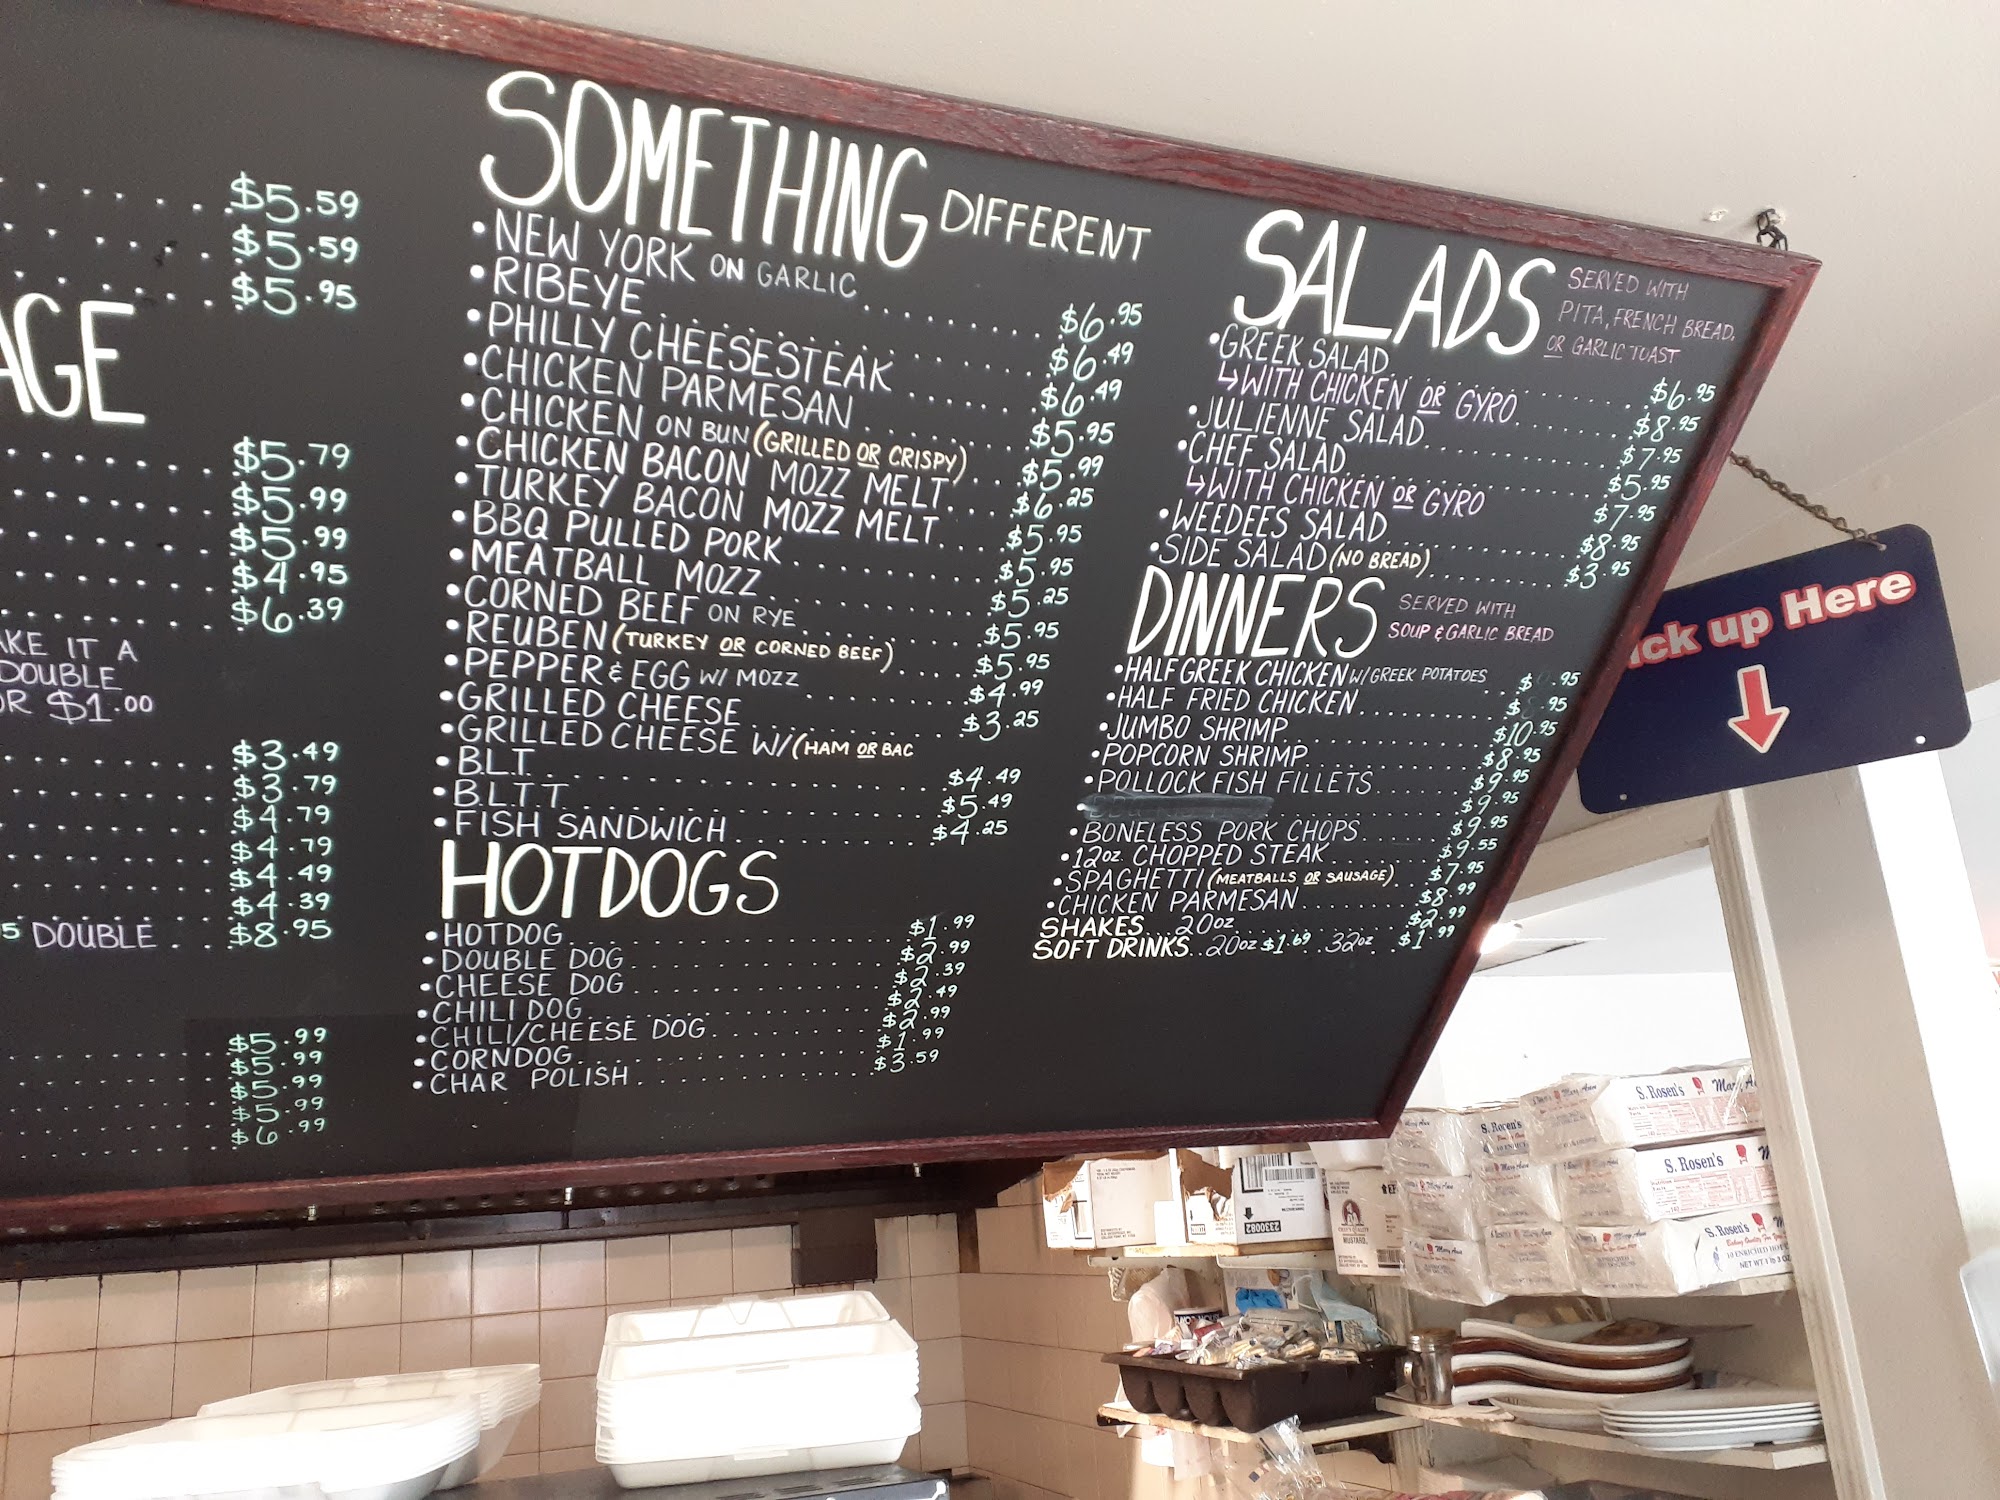 $5.59
$5.59
$5.95
AGE
$5.79
$5.99
$5.99
$4.95
$6.39
AKE IT A
DOUBLE
OR $1.00
$3.49
$3.79
$4.79
$4.79
$4.49
$4.39
5 DOUBLE . . $8.95
$5.99
$5.99
$5.99
$5.99
$6.99
SOMETHING DIFFERENT
• NEW YORK ON GARLIC $6.95
• RIBEYE $6.49
• PHILLY CHEESESTEAK $6.49
• CHICKEN PARMESAN $5.95
• CHICKEN ON BUN (GRILLED OR CRISPY) $5.99
• CHICKEN BACON MOZZ MELT $6.25
• TURKEY BACON MOZZ MELT $5.95
• BBQ PULLED PORK $5.95
• MEATBALL MOZZ $5.25
• CORNED BEEF ON RYE $5.95
• REUBEN (TURKEY OR CORNED BEEF) $5.95
• PEPPER & EGG W/ MOZZ $4.99
• GRILLED CHEESE $3.25
• GRILLED CHEESE W/ (HAM OR BAC
• B.L.T. $4.49
• B.L.T.T. $5.49
• FISH SANDWICH $4.25
HOTDOGS
• HOTDOG $1.99
• DOUBLE DOG $2.99
• CHEESE DOG $2.39
• CHILI DOG $2.49
• CHILI/CHEESE DOG $2.99
• CORNDOG $1.99
• CHAR POLISH $3.59
SALADS SERVED WITH
PITA, FRENCH BREAD,
OR GARLIC TOAST
• GREEK SALAD $6.95
↳ WITH CHICKEN OR GYRO $8.95
• JULIENNE SALAD $7.95
• CHEF SALAD $5.95
↳ WITH CHICKEN OR GYRO $7.95
• WEEDEES SALAD $8.95
• SIDE SALAD (NO BREAD) $3.95
DINNERS SERVED WITH
SOUP & GARLIC BREAD
• HALF GREEK CHICKEN W/ GREEK POTATOES $ .95
• HALF FRIED CHICKEN $ .95
• JUMBO SHRIMP $10.95
• POPCORN SHRIMP $8.95
• POLLOCK FISH FILLETS $9.95
• $9.95
• BONELESS PORK CHOPS $9.95
• 12oz. CHOPPED STEAK $9.55
• SPAGHETTI (MEATBALLS OR SAUSAGE) $7.95
• CHICKEN PARMESAN $8.99
SHAKES 20oz $2.99
SOFT DRINKS 20oz $1.69 32oz $1.99
ick up Here
S. Rosen's Mary A
S. Rosen's
S. Rosen's
S. Rosen's
2330082
MUSTARD
NET WT 1 lb 3 OZ